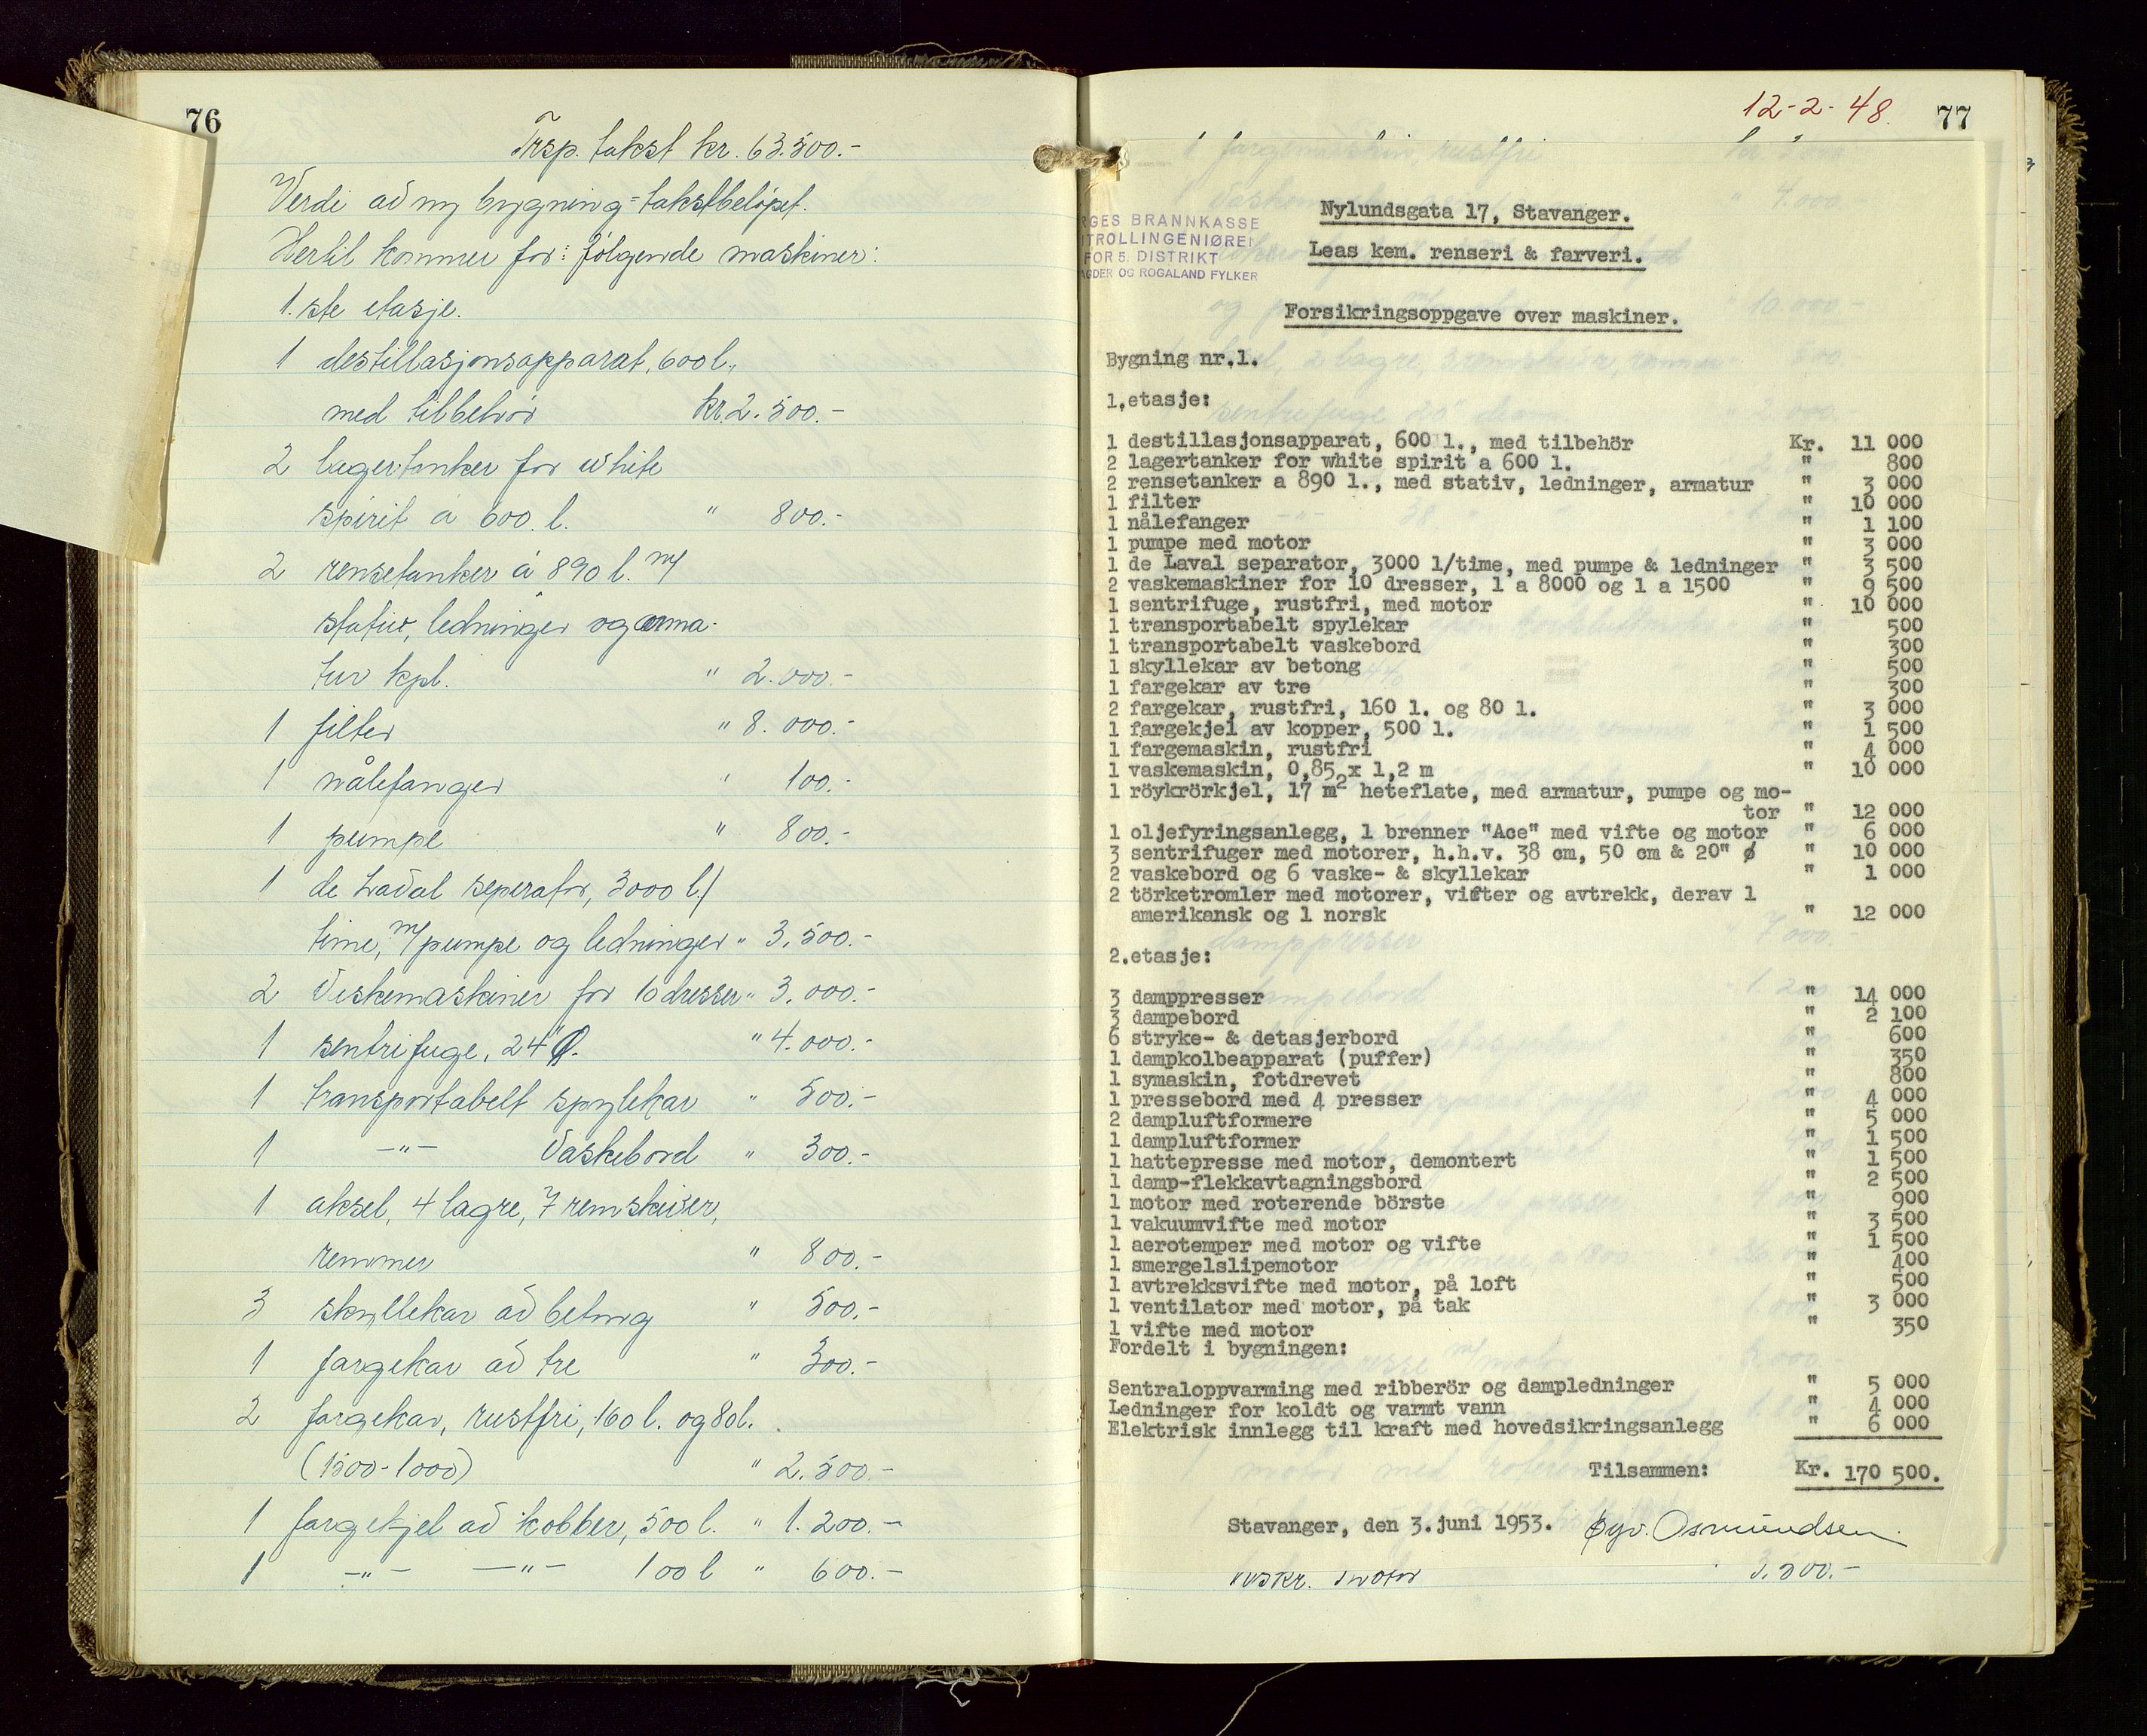 76
Trsp. takst kr. 63.500.-
Verdi av ny bygning = takstbeløpet.
Hertil kommer for: følgende maskiner:
1.ste etasje.
1 destillasjonsapparat, 600 l.,
med tilbehør kr. 2.500.-
2 lagertanker for white
spirit á 600. l. " 800.-
2 rensetanker á 890 l. m/
stativ, ledninger og arma-
tur kpl. " 2.000.-
1 filter " 8.000.-
1 nålefanger " 100.-
1 pumpe " 800.-
1 de Laval seperator, 3000 l./
time, m/ pumpe og ledninger " 3.500.-
2 Vaskemaskiner for 10 dresser " 3.000.-
1 sentrifuge, 24" Ø. " 4.000.-
1 transportabelt spylekar " 500.-
1 -"- Vaskebord " 300.-
1 aksel, 4 lagre, 7 remskiver,
remmer " 800.-
3 skyllekar av betong " 500.-
1 fargekar av tre " 300.-
2 fargekar, rustfri, 160 l. og 80 l.
(1500-1000) " 2.500.-
1 fargekjel av kobber, 500 l. " 1.200.-
1 -"- -"- 100 l " 600.-
12-2-48. 77
RGES BRANNKASSE
TROLLINGENIØRE
FOR 5. DISTRIKT
AGDER OG ROGALAND FYLKER
Nylundsgata 17, Stavanger.
Leas kem. renseri & farveri.
Forsikringsoppgave over maskiner.
Bygning nr.1.
1.etasje:
1 destillasjonsapparat, 600 l., med tilbehör Kr. 11 000
2 lagertanker for white spirit a 600 l. " 800
2 rensetanker a 890 l., med stativ, ledninger, armatur " 3 000
1 filter " 10 000
1 nålefanger " 1 100
1 pumpe med motor " 3 000
1 de Laval separator, 3000 l/time, med pumpe & ledninger " 3 500
2 vaskemaskiner for 10 dresser, 1 a 8000 og 1 a 1500 " 9 500
1 sentrifuge, rustfri, med motor " 10 000
1 transportabelt spylekar " 500
1 transportabelt vaskebord " 300
1 skyllekar av betong " 500
1 fargekar av tre " 300
2 fargekar, rustfri, 160 l. og 80 l. " 3 000
1 fargekjel av kopper, 500 l. " 1 500
1 fargemaskin, rustfri " 4 000
1 vaskemaskin, 0,85 x 1,2 m " 10 000
1 röykrörkjel, 17 m2 heteflate, med armatur, pumpe og mo-
tor " 12 000
1 oljefyringsanlegg, 1 brenner "Ace" med vifte og motor " 6 000
3 sentrifuger med motorer, h.h.v. 38 cm, 50 cm & 20" ø " 10 000
2 vaskebord og 6 vaske- & skyllekar " 1 000
2 törketromler med motorer, vifter og avtrekk, derav 1
amerikansk og 1 norsk " 12 000
2.etasje:
3 damppresser " 14 000
3 dampebord " 2 100
6 stryke- & detasjerbord " 600
1 dampkolbeapparat (puffer) " 350
1 symaskin, fotdrevet " 800
1 pressebord med 4 presser " 4 000
2 dampluftformere " 5 000
1 dampluftformer " 1 500
1 hattepresse med motor, demontert " 1 500
1 damp-flekkavtagningsbord " 2 500
1 motor med roterende börste " 900
1 vakuumvifte med motor " 3 500
1 aerotemper med motor og vifte " 1 500
1 smergelslipemotor " 400
1 avtrekksvifte med motor, på loft " 500
1 ventilator med motor, på tak " 3 000
1 vifte med motor " 350
Fordelt i bygningen:
Sentraloppvarming med ribberör og dampledninger " 5 000
Ledninger for koldt og varmt vann " 4 000
Elektrisk innlegg til kraft med hovedsikringsanlegg " 6 000
Tilsammen: Kr. 170 500.
Stavanger, den 3.juni 1953. Øyv. Osmundsen.
motor 3.500.-